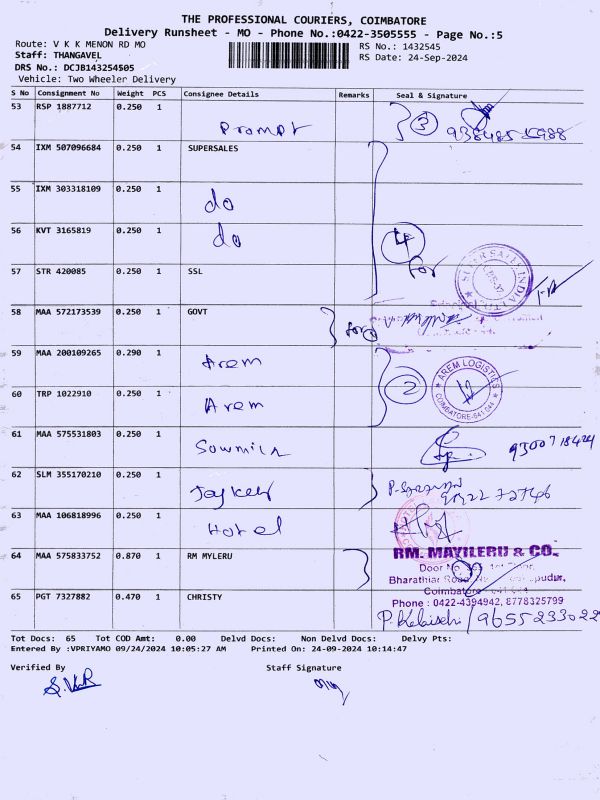 THE PROFESSIONAL COURIERS, COIMBATORE
Delivery Runsheet - MO - Phone No.:0422-3505555 - Page No.:5
Route: V K K MENON RD MO
RS No.: 1432545
Staff: THANGAVEL
RS Date: 24-Sep-2024
DRS No.: DCJB143254505
Vehicle: Two Wheeler Delivery
S No Consignment No Weight PCS Consignee Details Remarks Seal & Signature
53 RSP 1887712 0.250 1
Prompt 3
54 IXM 507096684 0.250 1 SUPERSALES
55 IXM 303318109 0.250 1
do
56 KVT 3165819 0.250 1
do 4
for
57 STR 420085 0.250 1 SSL
58 MAA 572173539 0.250 1 GOVT
for
59 MAA 200109265 0.290 1
Arem 2
AREM LOGISTICS
COIMBATORE-641 044
60 TRP 1022910 0.250 1
Arem
61 MAA 575531803 0.250 1
Sowmiya
62 SLM 355170210 0.250 1
Jaykey
63 MAA 106818996 0.250 1
Hotel
64 MAA 575833752 0.870 1 RM MYLERU
RM. MAYILERU & CO.
Door No
Bharathiar Road
Coimbatore
Phone : 0422-4394942, 8778325799
65 PGT 7327882 0.470 1 CHRISTY
9655233022
Tot Docs: 65 Tot COD Amt: 0.00 Delvd Docs: Non Delvd Docs: Delvy Pts:
Entered By :VPRIYAMO 09/24/2024 10:05:27 AM Printed On: 24-09-2024 10:14:47
Verified By Staff Signature